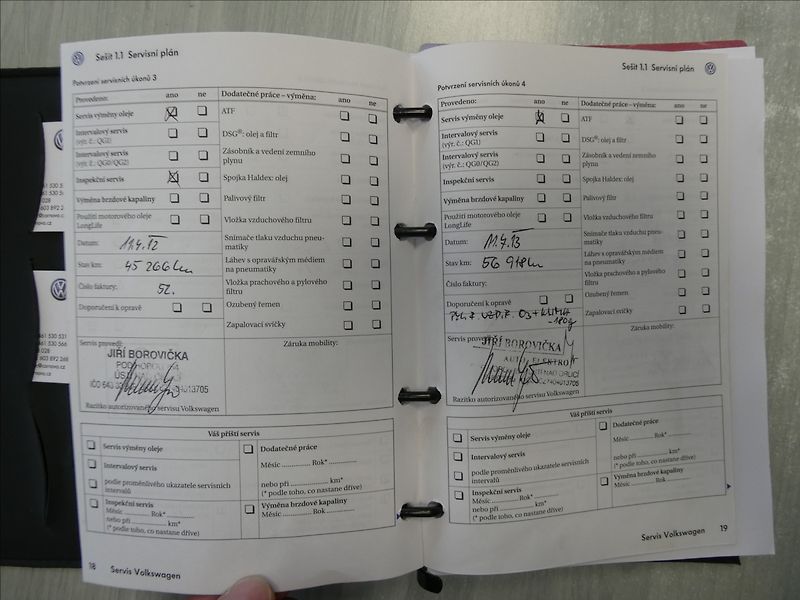 Sešit 1.1 Servisní plán
Potvrzení servisních úkonů 3
Provedeno: ano ne
Servis výměny oleje
Intervalový servis
(výr. č.: QG1)
Intervalový servis
(výr. č.: QG0/QG2)
Inspekční servis
Výměna brzdové kapaliny
Použití motorového oleje
LongLife
Datum: 11.4.12
Stav km: 45 266 km
Číslo faktury: 52.
Doporučení k opravě
Servis provedl:
JIŘÍ BOROVIČKA
Razítko autorizovaného servisu Volkswagen
Dodatečné práce – výměna: ano ne
ATF
DSG®: olej a filtr
Zásobník a vedení zemního
plynu
Spojka Haldex: olej
Palivový filtr
Vložka vzduchového filtru
Snímače tlaku vzduchu pneu-
matiky
Láhev s opravářským médiem
na pneumatiky
Vložka prachového a pylového
filtru
Ozubený řemen
Zapalovací svíčky
Záruka mobility:
Váš příští servis
Servis výměny oleje
Intervalový servis
podle proměnlivého ukazatele servisních
intervalů
Inspekční servis
Měsíc .......... Rok* ..........
nebo při .................... km*
(* podle toho, co nastane dříve)
Dodatečné práce
Měsíc .............. Rok* ..............
nebo při .................... km*
(* podle toho, co nastane dříve)
Výměna brzdové kapaliny
Měsíc .............. Rok ..............
18 Servis Volkswagen
Sešit 1.1 Servisní plán
Potvrzení servisních úkonů 4
Provedeno: ano ne
Servis výměny oleje
Intervalový servis
(výr. č.: QG1)
Intervalový servis
(výr. č.: QG0/QG2)
Inspekční servis
Výměna brzdové kapaliny
Použití motorového oleje
LongLife
Datum: 11.4.13
Stav km: 56 918 km
Číslo faktury:
Doporučení k opravě
Servis provedl:
JIŘÍ BOROVIČKA
Razítko autorizovaného servisu Volkswagen
Dodatečné práce – výměna: ano ne
ATF
DSG®: olej a filtr
Zásobník a vedení zemního
plynu
Spojka Haldex: olej
Palivový filtr
Vložka vzduchového filtru
Snímače tlaku vzduchu pneu-
matiky
Láhev s opravářským médiem
na pneumatiky
Vložka prachového a pylového
filtru
Ozubený řemen
Zapalovací svíčky
Záruka mobility:
Váš příští servis
Servis výměny oleje
Intervalový servis
podle proměnlivého ukazatele servisních
intervalů
Inspekční servis
Měsíc .......... Rok* ..........
nebo při .................... km*
(* podle toho, co nastane dříve)
Dodatečné práce
Měsíc .............. Rok* ..............
nebo při .................... km*
(* podle toho, co nastane dříve)
Výměna brzdové kapaliny
Měsíc .............. Rok ..............
Servis Volkswagen 19